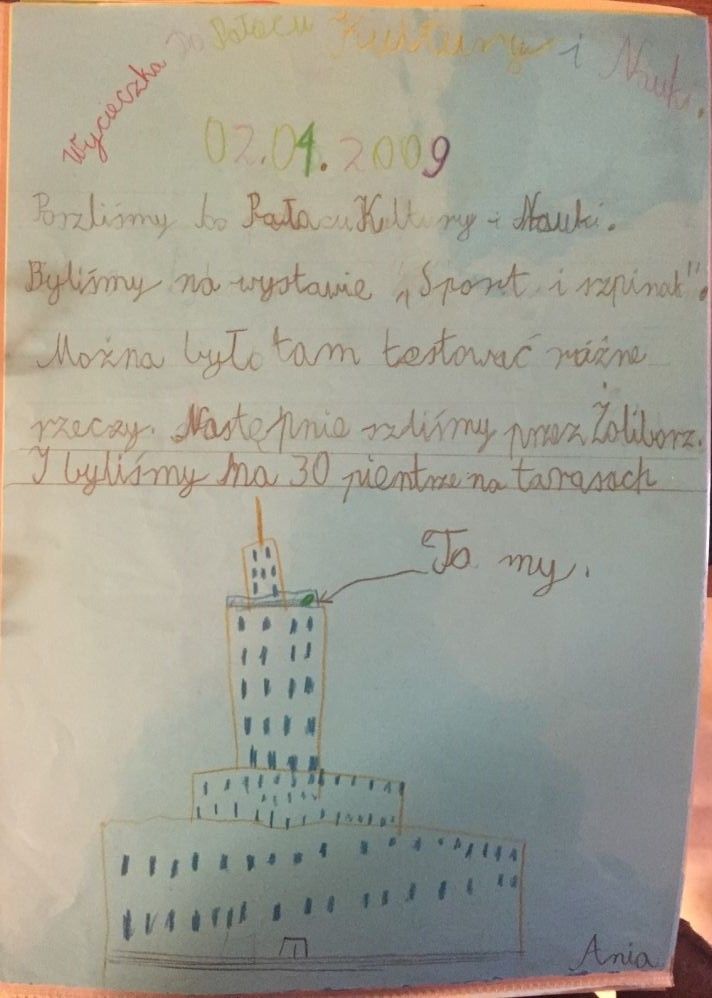 Wycieczka Do Pałacu Kultury i Nauki.
02.04.2009
Poszliśmy do Pałacu Kultury i Nauki.
Byliśmy na wystawie „Sport i szpinak".
Można było tam testować różne
rzeczy. Następnie szliśmy przez Żoliborz.
I byliśmy na 30 pientrze na tarasach
To my.
Ania